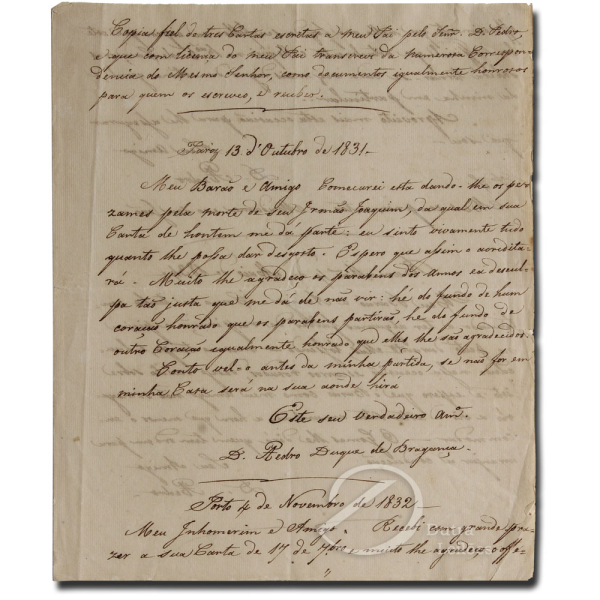 Copia fiel de tres Cartas escritas a meu Pai pelo Snr. D. Pedro,
e que com licença do meu Pai transcrevi da numerosa Correspon-
dencia do Mesmo Senhor, como documentos igualmente honrosos
para quem os escreveo, e recebeo.
Pariz 13 d'Outubro de 1831-
Meu Barão e Amigo Começarei esta dando-lhe os pe-
zames pela morte de seu Irmão Joaquim, da qual em sua
Carta de hontem me da parte: eu sinto vivamente tudo
quanto lhe possa dar desgosto. Espero que assim o acredita-
rá. Muito lhe agradeço os parabens dos annos ea descul-
pa tão justa que me dá de não vir: hé do fundo de hum
coração honrado que os parabens partirão, he do fundo de
outro Coração egualmente honrado que elles lhe são agradecidos:
Conto vel-o antes da minha partida, se não for em
minha Casa será na sua aonde hira
Este seu Verdadeiro Amº.
D. Pedro Duque de Bragança.
Porto 4 de Novembro de 1832
Meu Inhomerim e Amigo. Recebi com grande pra-
zer a sua Carta de 17 de 7bro lhe agradeço o offe-